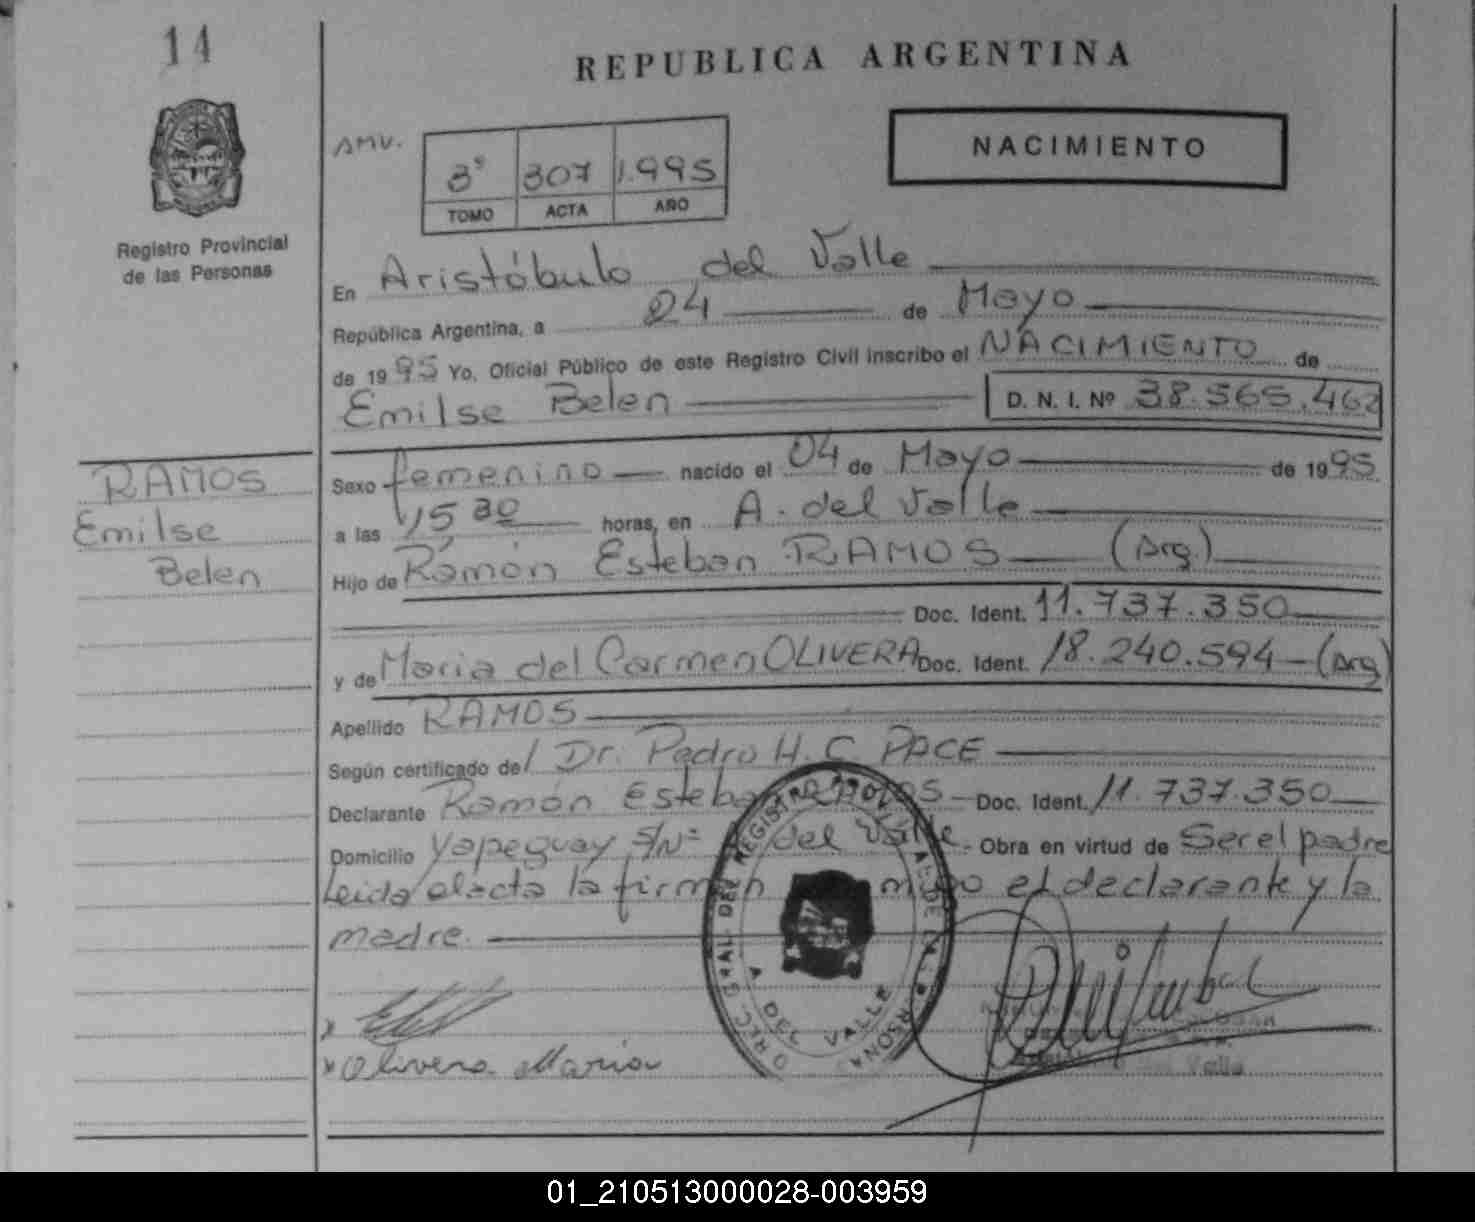 14
REPUBLICA ARGENTINA
Registro Provincial
de las Personas
AMV.
3º 307 1.995
TOMO ACTA AÑO
NACIMIENTO
En Aristóbulo del Valle
República Argentina, a 24 de Mayo
de 1995 Yo, Oficial Público de este Registro Civil inscribo el NACIMIENTO de
Emilse Belen D. N. I. Nº 38.565.462
RAMOS
Emilse
Belen
Sexo femenino nacido el 04 de Mayo de 1995
a las 15 30 horas, en A. del Valle
Hijo de Ramón Esteban RAMOS (Arg.)
Doc. Ident. 11.737.350
y de Maria del Carmen OLIVERA Doc. Ident. 18.240.594 (Arg)
Apellido RAMOS
Según certificado del Dr. Pedro H. C. PACE
Declarante Ramón Esteban RAMOS Doc. Ident. 11.737.350
Domicilio Yapeguay S/Nº del Valle. Obra en virtud de Ser el padre
Leida el acta la firman el declarante y la
madre.
Olivera Maria
A DEL VALLE
01_210513000028-003959